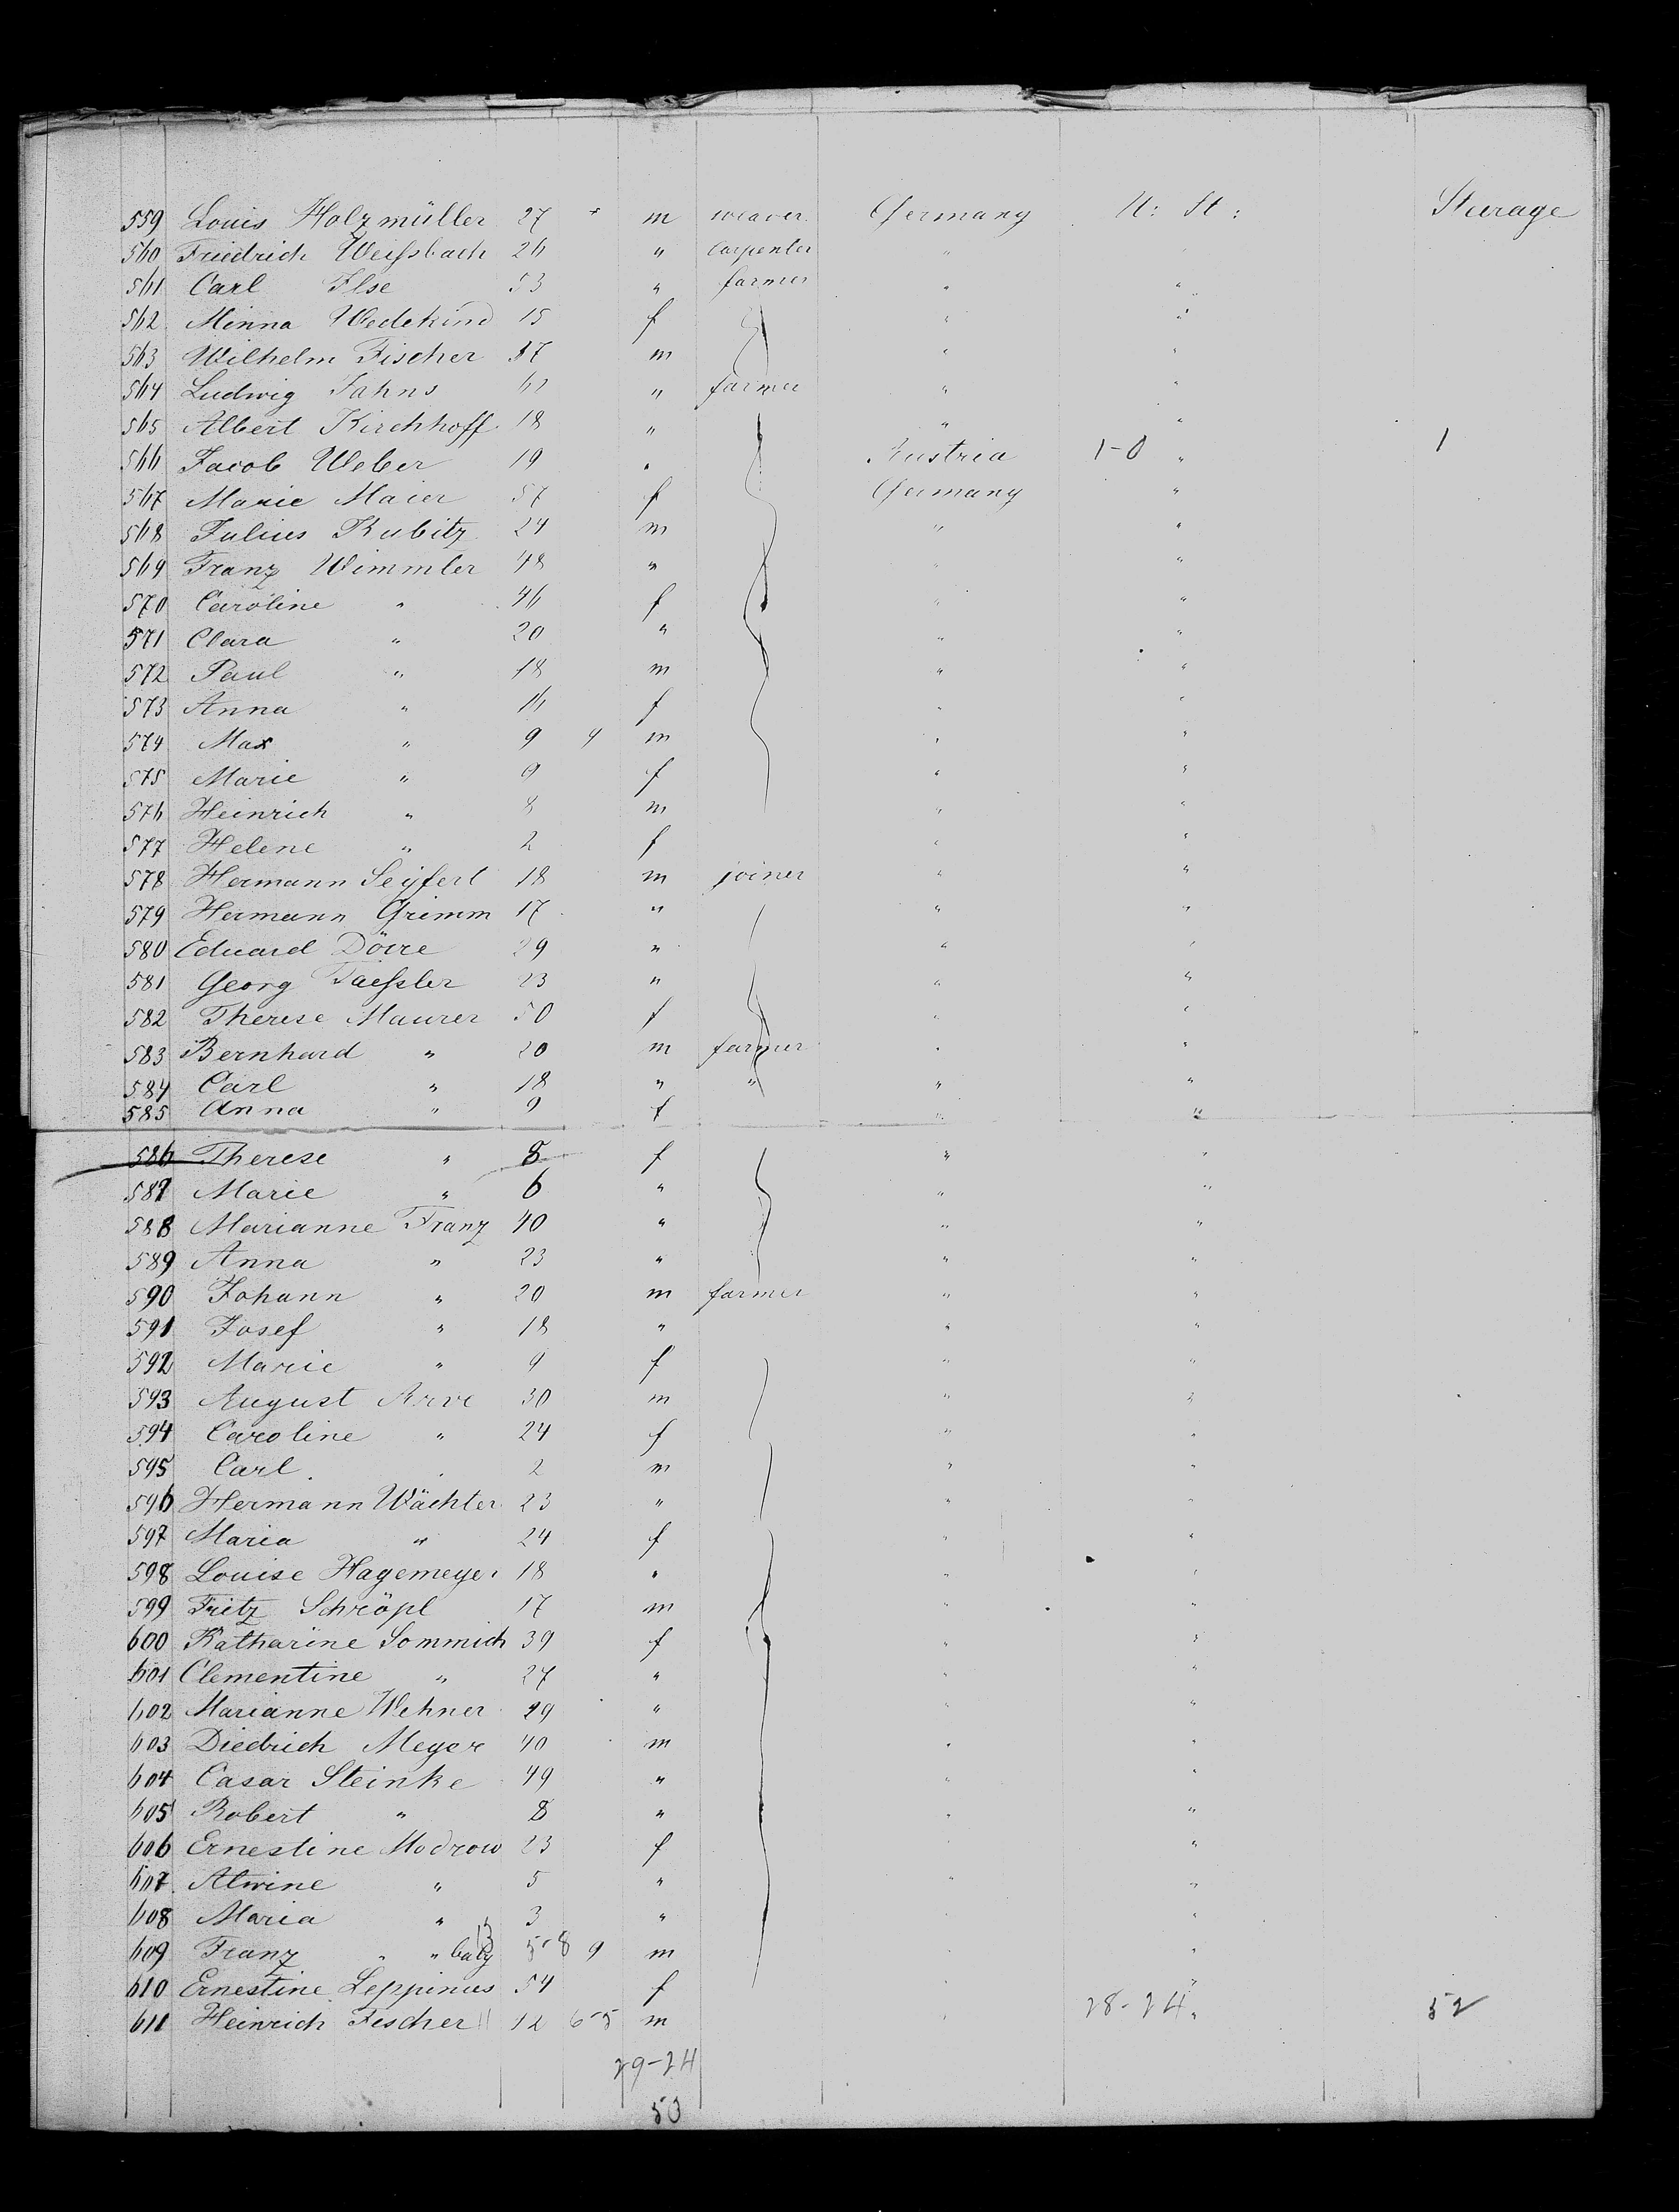 559 Louis Holzmüller 27 m weaver Germany U: St: Steerage
560 Friedrich Weiſsbach 26 " carpenter " "
561 Carl Ilse 53 " farmer " "
562 Minna Wedekind 15 f " "
563 Wilhelm Fischer 37 m " "
564 Ludwig Jahns 62 " farmer " "
565 Albert Kirchhoff 18 " " "
566 Jacob Weber 19 " Austria 1-0 " 1
567 Marie Maier 57 f Germany "
568 Julius Kubitz 24 m " "
569 Franz Wimmler 48 " " "
570 Caroline " 46 f " "
571 Clara " 20 " " "
572 Paul " 18 m " "
573 Anna " 16 f " "
574 Max " 9 4 m " "
575 Marie " 9 f " "
576 Heinrich " 8 m " "
577 Helene " 2 f " "
578 Hermann Seyfert 18 m joiner " "
579 Hermann Grimm 17 " " "
580 Eduard Dörre 29 " " "
581 Georg Taeſsler 23 " " "
582 Therese Maurer 50 f " "
583 Bernhard " 20 m farmer " "
584 Carl " 18 " " " "
585 Anna " 9 f " "
586 Therese " 8 f " "
587 Marie " 6 " " "
588 Marianne Franz 40 " " "
589 Anna " 23 " " "
590 Johann " 20 m farmer " "
591 Josef " 18 " " "
592 Marie " 9 f " "
593 August Arve 30 m " "
594 Caroline " 24 f " "
595 Carl " 2 m " "
596 Hermann Wächter 23 " " "
597 Maria " 24 f " "
598 Louise Hagemeyer 18 " " "
599 Fritz Schröpl 17 m " "
600 Katharine Sommich 39 f " "
601 Clementine " 27 " " "
602 Marianne Wehner 29 " " "
603 Diedrich Meyer 40 m " "
604 Casar Steinke 49 " " "
605 Robert " 8 " " "
606 Ernestine Modrow 23 f " "
607 Alwine " 5 " " "
608 Maria " 3 " " "
609 Franz " " baby 5-8 9 m " "
610 Ernestine Leppinus 54 f " "
611 Heinrich Fischer 12 6-5 m " 28-24 " 52
29-24
53